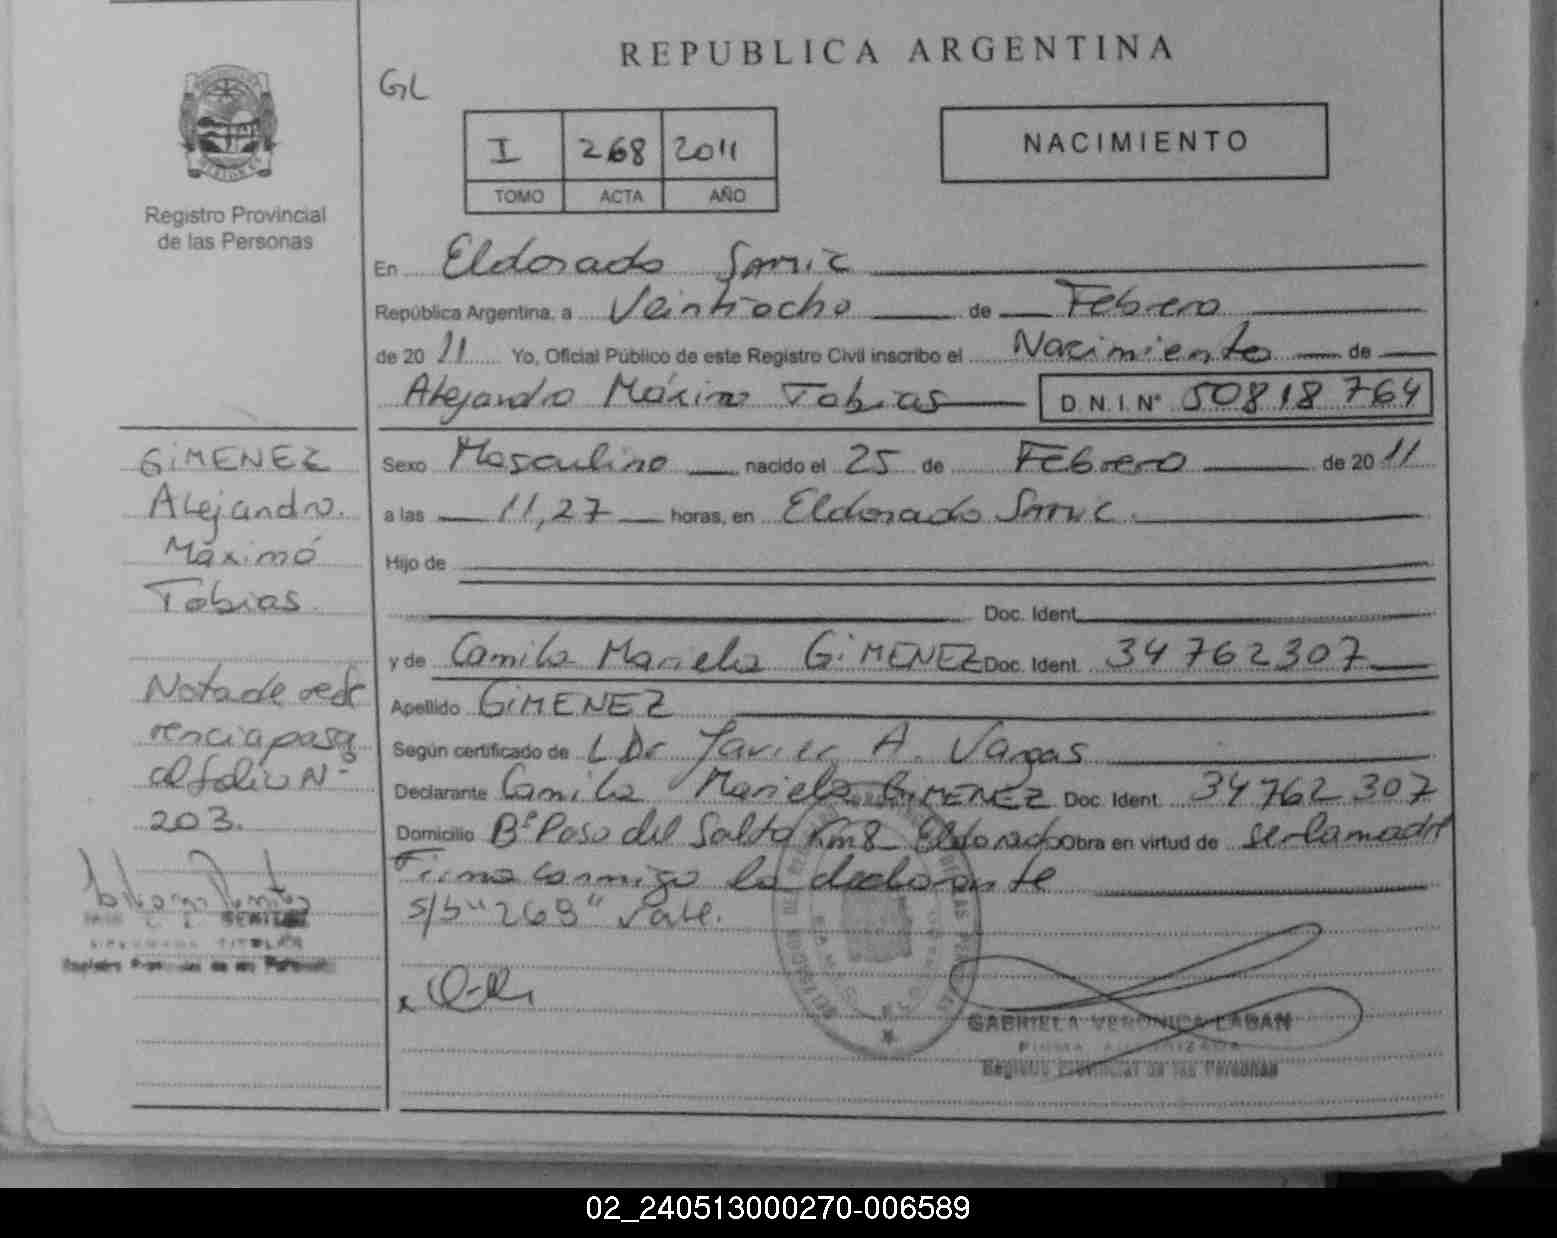 REPUBLICA ARGENTINA
GL
I 268 2011
TOMO ACTA AÑO
NACIMIENTO
Registro Provincial
de las Personas
En Eldorado Samic
República Argentina, a Veintiocho de Febrero
de 2011 Yo, Oficial Público de este Registro Civil inscribo el Nacimiento de
Alejandro Máximo Tobias D.N.I.Nº 50818764
GiMENEZ
Alejandro.
Máximo
Tobias
Nota de refe
rencia pasa
al folio Nº
203.
Sexo Masculino nacido el 25 de Febrero de 2011
a las 11,27 horas, en Eldorado Samic.
Hijo de
Doc. Ident.
y de Camila Mariela GiMENEZ Doc. Ident. 34762307
Apellido GiMENEZ
Según certificado de L Dr Javier A. Vargas
Declarante Camila Mariela GiMENEZ Doc. Ident. 34762307
Domicilio Bº Paso del Salto Km8 Eldorado Obra en virtud de ser la madre
Firma conmigo la declarante
s/b "268" Vale.
GABRIELA VERONICA LABAN
FIRMA AUTORIZADA
Registro Provincial de las Personas
Registro Provincial de las Personas
02_240513000270-006589